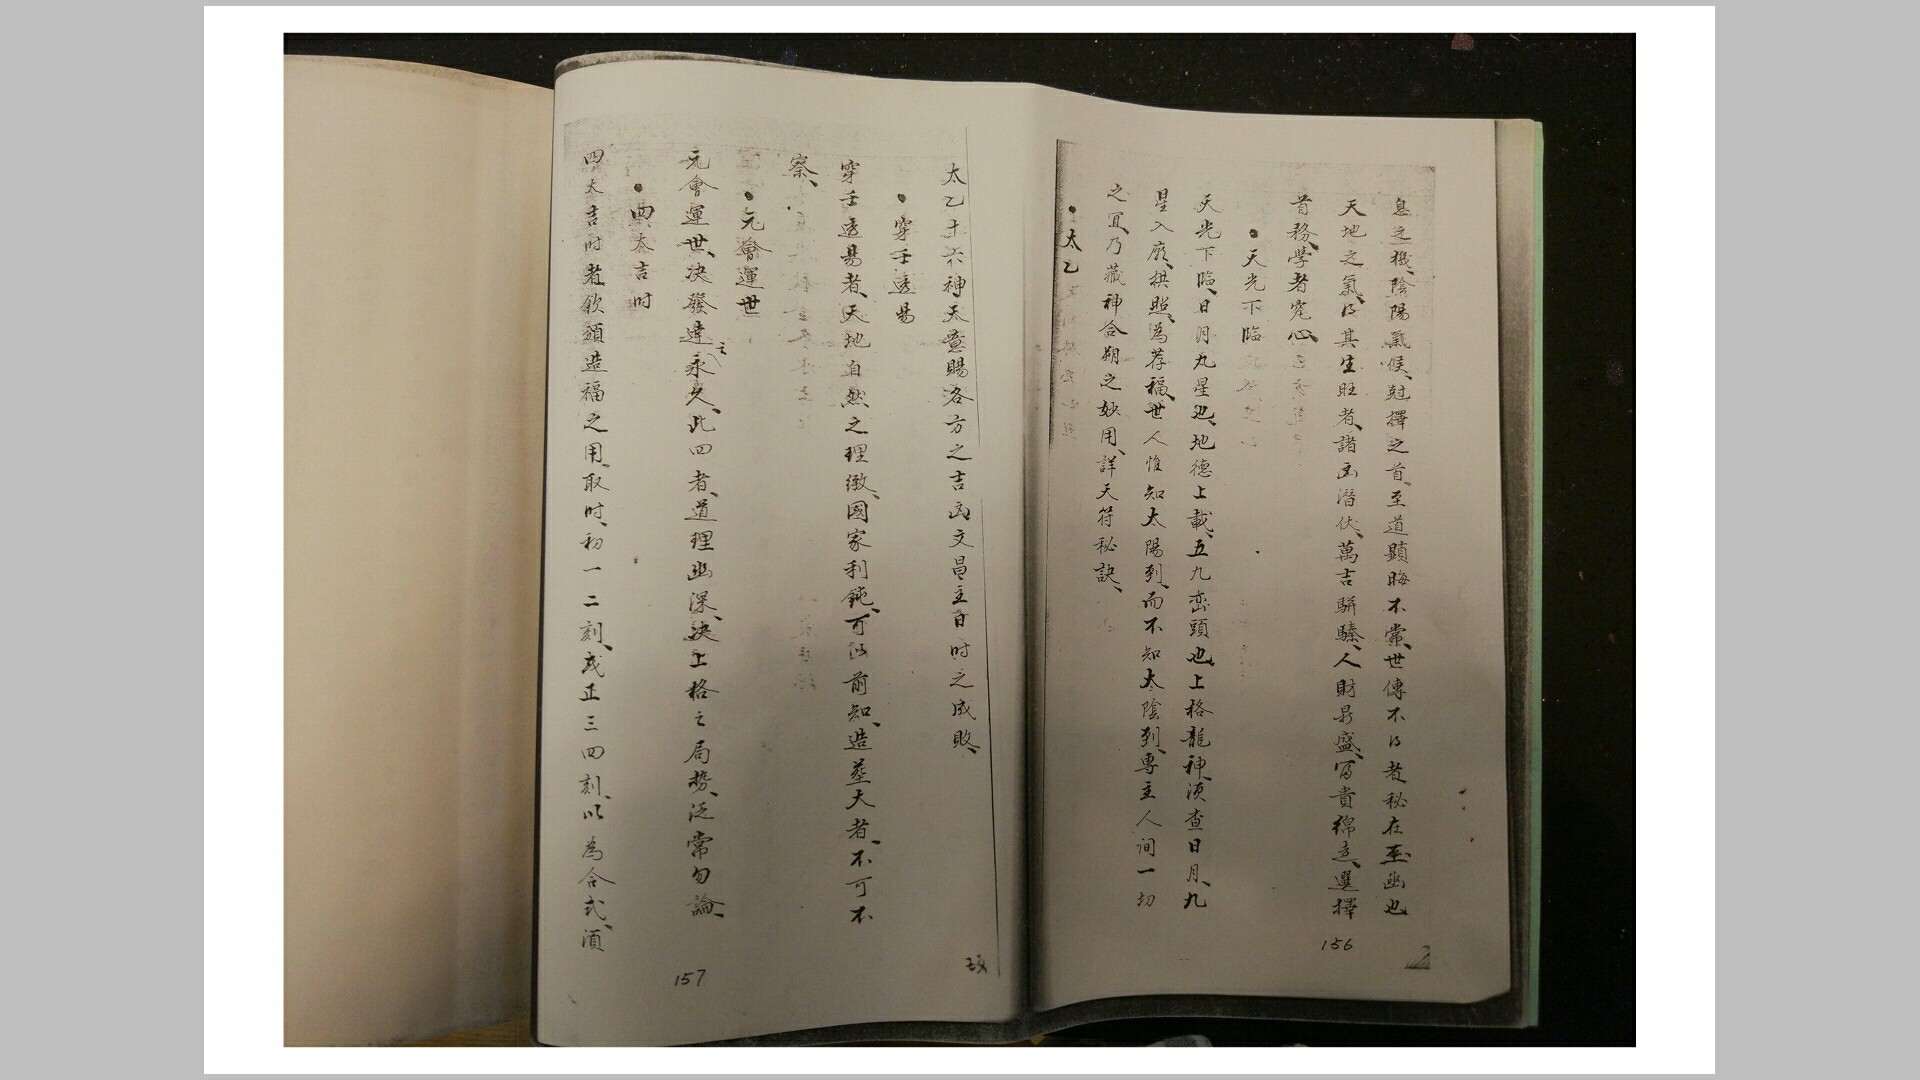 息之機、陰陽氣候、尅擇之首、至道顯晦不常、世傳不得者秘在至幽也
天地之氣、得其生旺者、諸凶潛伏、萬吉駢臻、人財昌盛、富貴綿遠、選擇
首務、學者究心、
•天光下臨
天光下臨、日月九星也、地德上載、五九巒頭也、上格龍神、須查日月、九
星入廟、拱照、為荐福、世人惟知太陽到、而不知太陰到、專主人间一切
之宜、乃藏神合朔之妙用、詳天符秘訣、
•太乙
156
太乙十六神天意賜各方之吉凶文昌主日时之成敗、
•穿壬透易
穿壬透易者、天地自然之理緻、國家利鈍、可以前知、造葬大者、不可不
察、
•元會運世
元會運世、决發達之永久、此四者、道理幽深、决上格之局勢、泛常勿論、
•四大吉时
四大吉时者、欽頒造福之用、取时、初一二刻、或正三四刻、以為合式、須
157